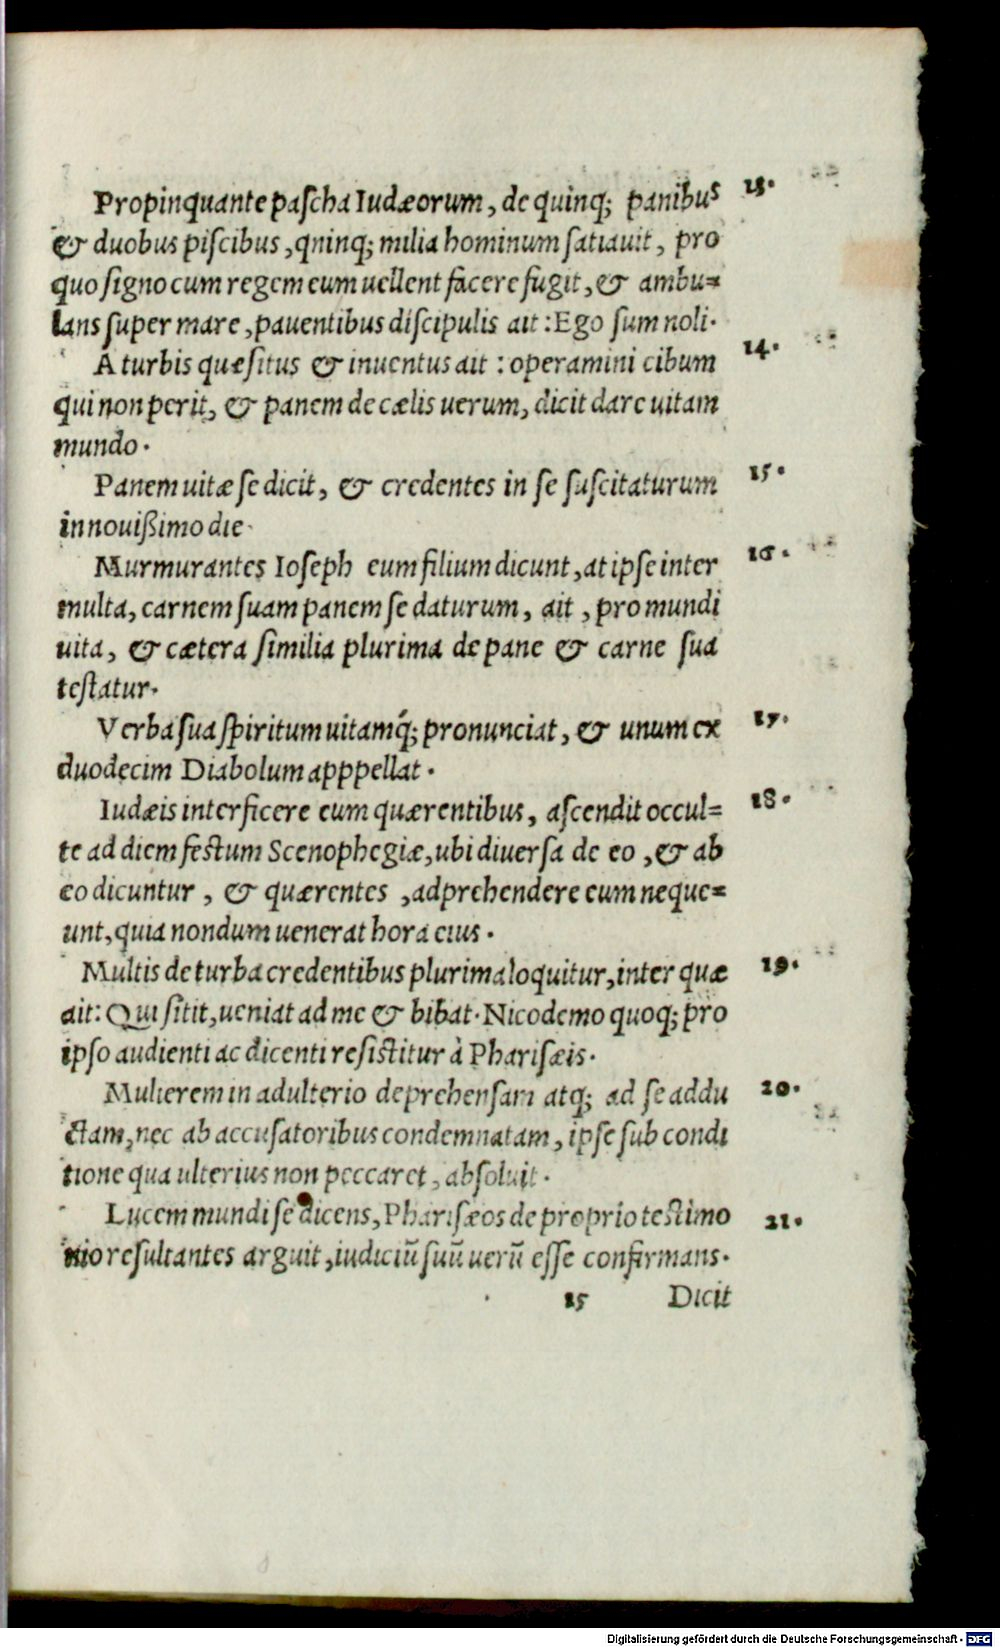 Propinquante paſcha Iudæorum, de quinq; panibus 13.
& duobus piſcibus, qninq; milia hominum ſatiauit, pro
quo ſigno cum regem eum uellent facere fugit, & ambu=
lans ſuper mare, pauentibus diſcipulis ait: Ego ſum noli.
A turbis quæſitus & inuentus ait: operamini cibum 14.
qui non perit, & panem de cælis uerum, dicit dare uitam
mundo.
Panem uitæ ſe dicit, & credentes in ſe ſuſcitaturum 15.
in nouißimo die.
Murmurantes Ioſeph eum filium dicunt, at ipſe inter 16.
multa, carnem ſuam panem ſe daturum, ait, pro mundi
uita, & cætera ſimilia plurima de pane & carne ſua
teſtatur.
Verba ſua ſpiritum uitamq́; pronunciat, & unum ex 17.
duodecim Diabolum apppellat.
Iudæis interficere eum quærentibus, aſcendit occul= 18.
te ad diem feſtum Scenophegiæ, ubi diuerſa de eo, & ab
eo dicuntur, & quærentes, adprehendere eum neque=
unt, quia nondum uenerat hora eius.
Multis de turba credentibus plurima loquitur, inter quæ 19.
ait: Qui ſitit, ueniat ad me & bibat. Nicodemo quoq; pro
ipſo audienti ac dicenti reſiſtitur à Phariſæis.
Mulierem in adulterio deprehenſam atq; ad ſe addu 20.
ctam, nec ab accuſatoribus condemnatam, ipſe ſub condi
tione qua ulterius non peccaret, abſoluit.
Lucem mundi ſe dicens, Phariſæos de proprio teſtimo 21.
nio reſultantes arguit, iudiciũ ſuũ uerũ eſſe confirmans.
15 Dicit
Digitalisierung gefördert durch die Deutsche Forschungsgemeinschaft - DFG